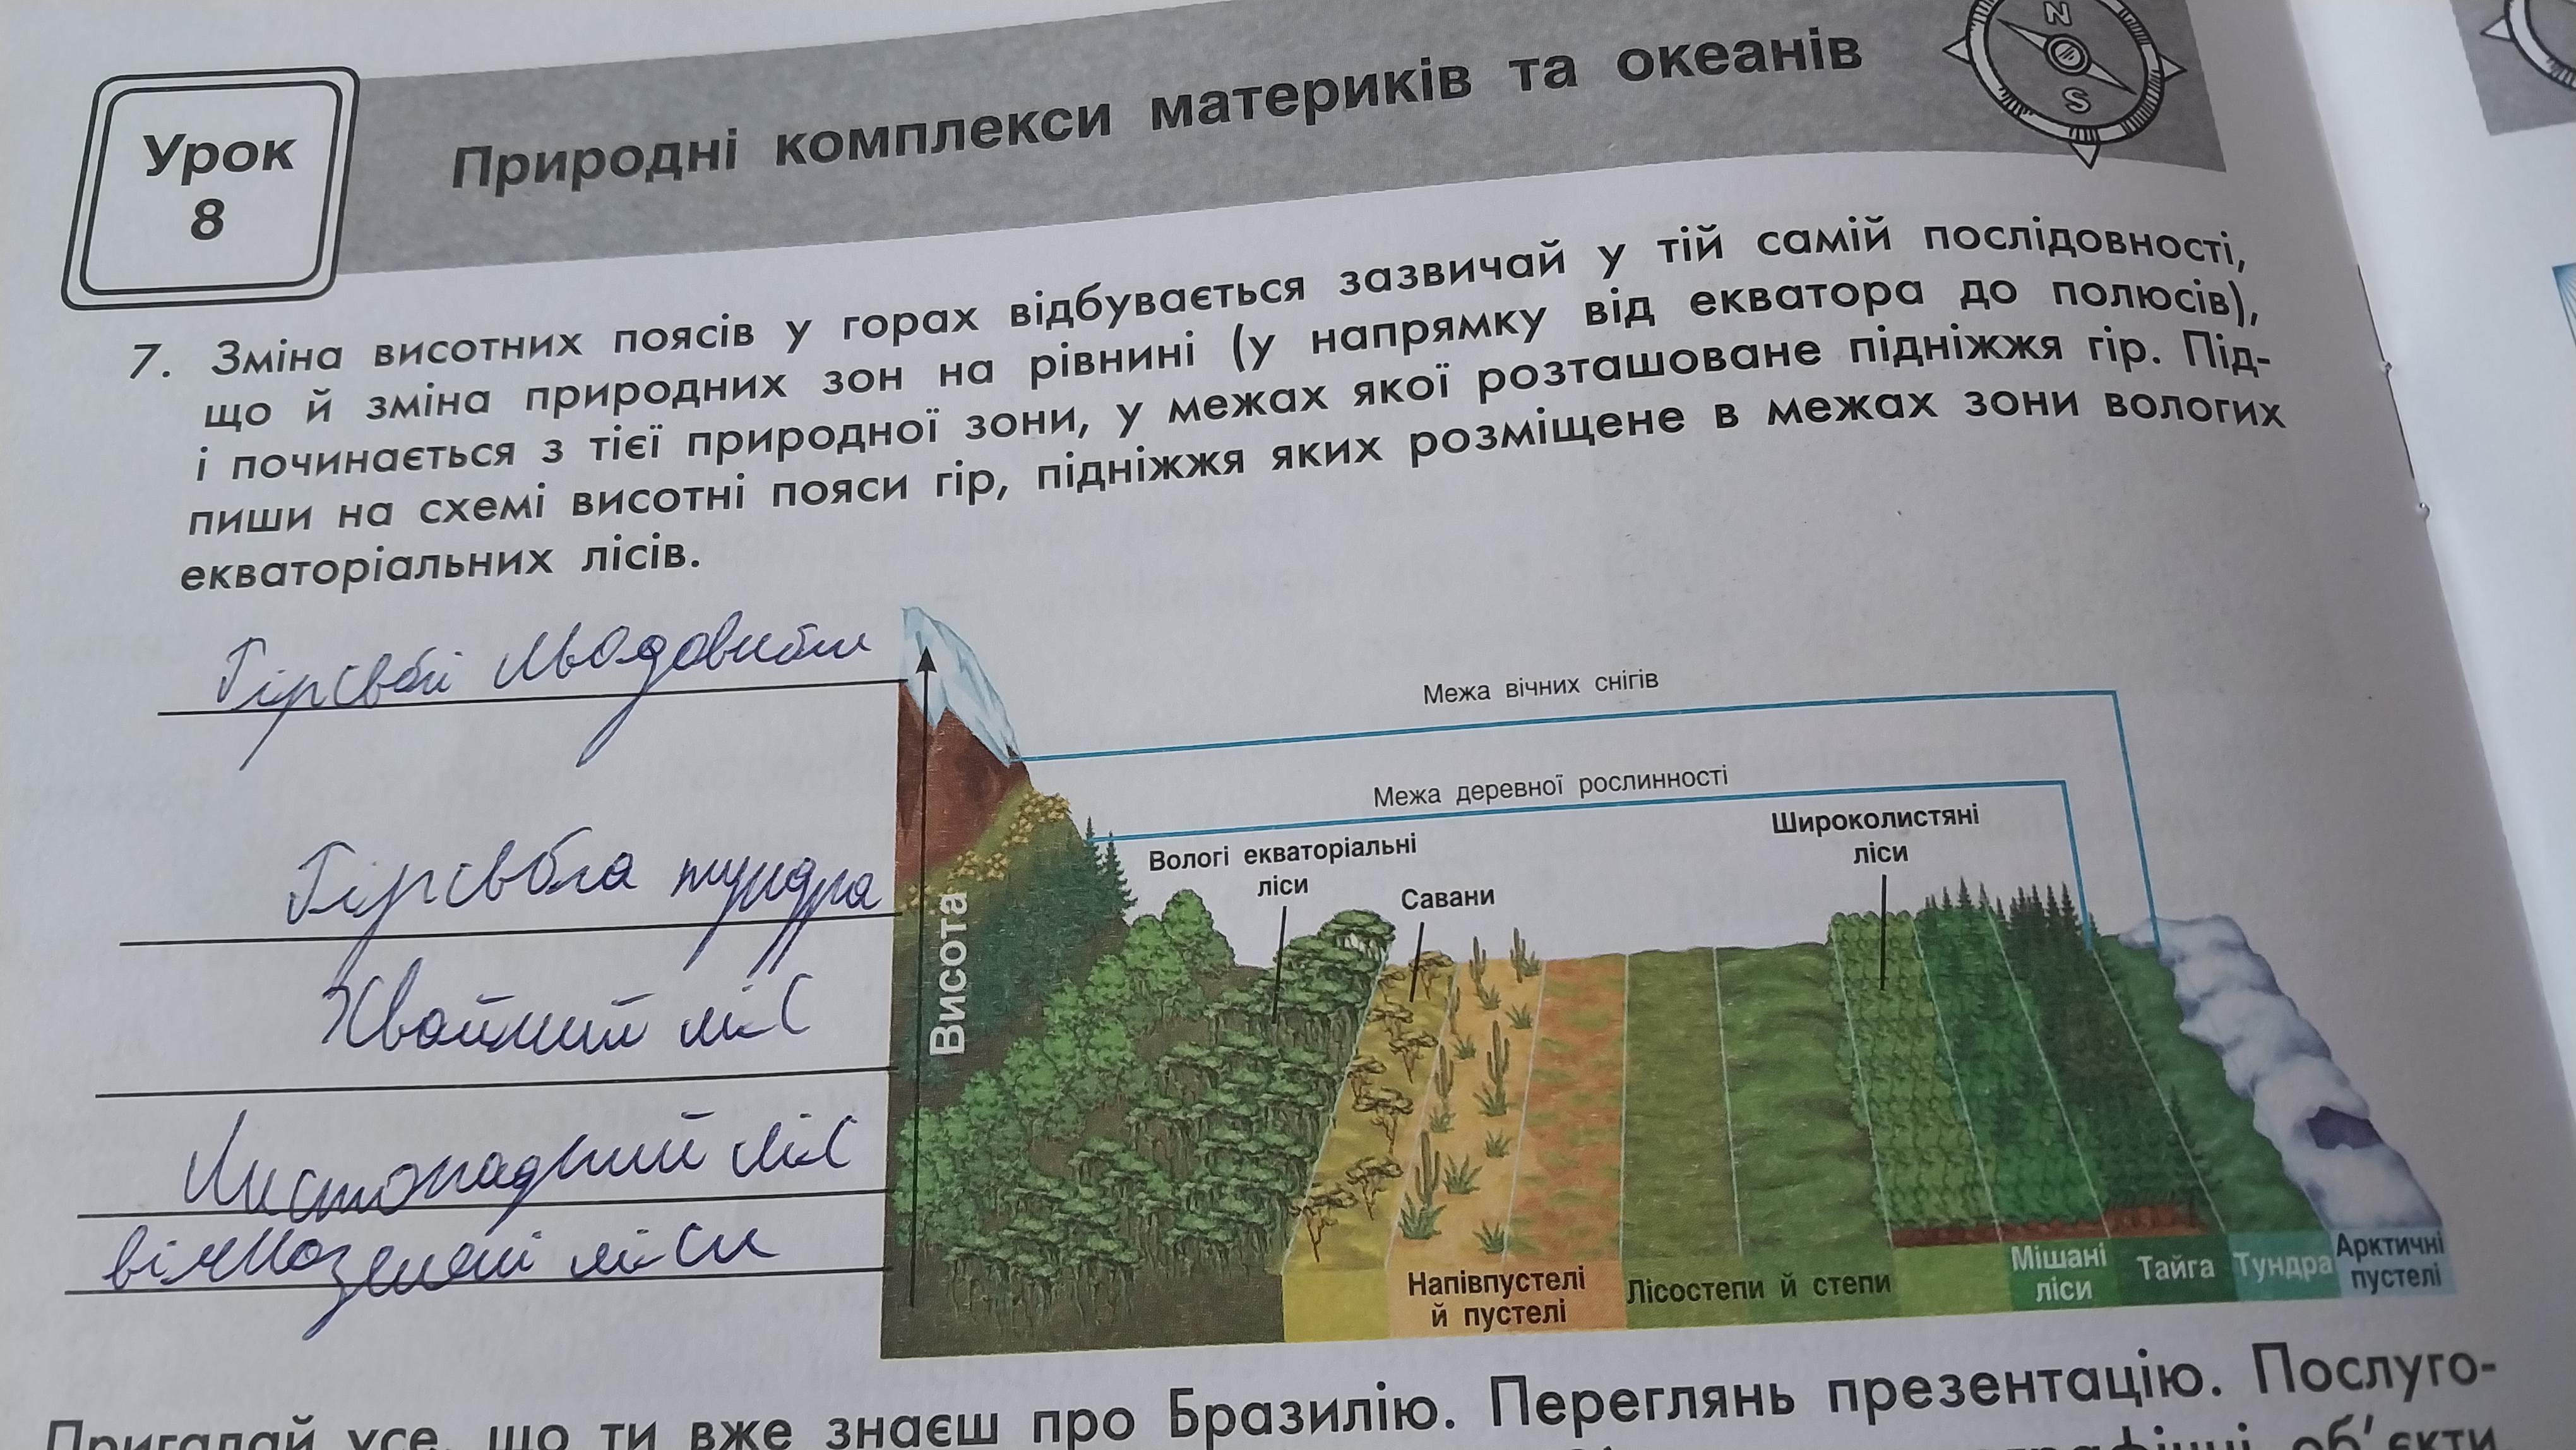 Урок
8
Природні комплекси материків та океанів
N
S
7. Зміна висотних поясів у горах відбувається зазвичай у тій самій послідовності,
що й зміна природних зон на рівнині (у напрямку від екватора до полюсів),
і починається з тієї природної зони, у межах якої розташоване підніжжя гір. Під-
пиши на схемі висотні пояси гір, підніжжя яких розміщене в межах зони вологих
екваторіальних лісів.
льодовики
Межа вічних снігів
Межа деревної рослинності
Широколистяні
ліси
Вологі екваторіальні
ліси
Савани
тундра
Висота
Хвойний ліс
Листопадний ліс
вічнозелені ліси
Напівпустелі
й пустелі
Лісостепи й степи
Мішані
ліси
Тайга
Тундра
Арктичні
пустелі
Пригадай усе, що ти вже знаєш про Бразилію. Переглянь презентацію. Послуго-
об'єкти